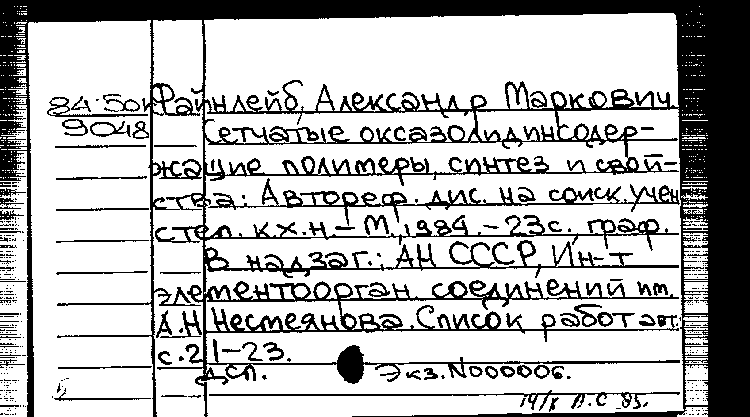 84-50к Файнлейб, Александр Маркович.
9048 Сетчатые оксазолидинсодер-
жащие полимеры, синтез и свой-
ства: Автореф. дис. на соиск. учен
степ. к.х.н. – М., 1984. – 23с., граф.
В надзаг.: АН СССР, Ин-т
элементоорган. соединений им.
А.Н Несмеянова. Список работ авт.
с. 21–23.
ДСП. Экз. N000006.
14/X 85.